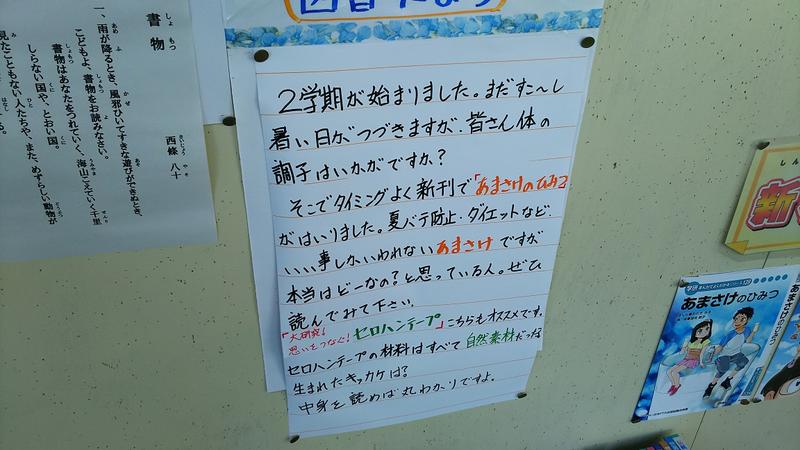 書物
しょもつ
西條 八十
さいじょう やそ
一、雨が降るとき、風邪ひいてすきな遊びができぬとき、
こどもよ、書物をお読みなさい。
書物はあなたをつれていく、海山こえていく千里
しらない国や、とおい国。
見たこともない人たちや、また、めずらしい動物が
2学期が始まりました。まだすこ〜し
暑い日がつづきますが、皆さん体の
調子はいかがですか?
そこでタイミングよく新刊で「あまさけのひみつ」
がはいりました。夏バテ防止・ダイエットなど、
いい事しかいわれないあまさけですが
本当はどーなの?と思っている人。ぜひ
読んでみて下さい。
「大研究!
思いをつなぐ!セロハンテープ」こちらもオススメです。
セロハンテープの材料はすべて自然素材だった
生まれたキッカケは?
中身を読めば丸わかりですよ。
しん
新
学研
あまさけのひみつ